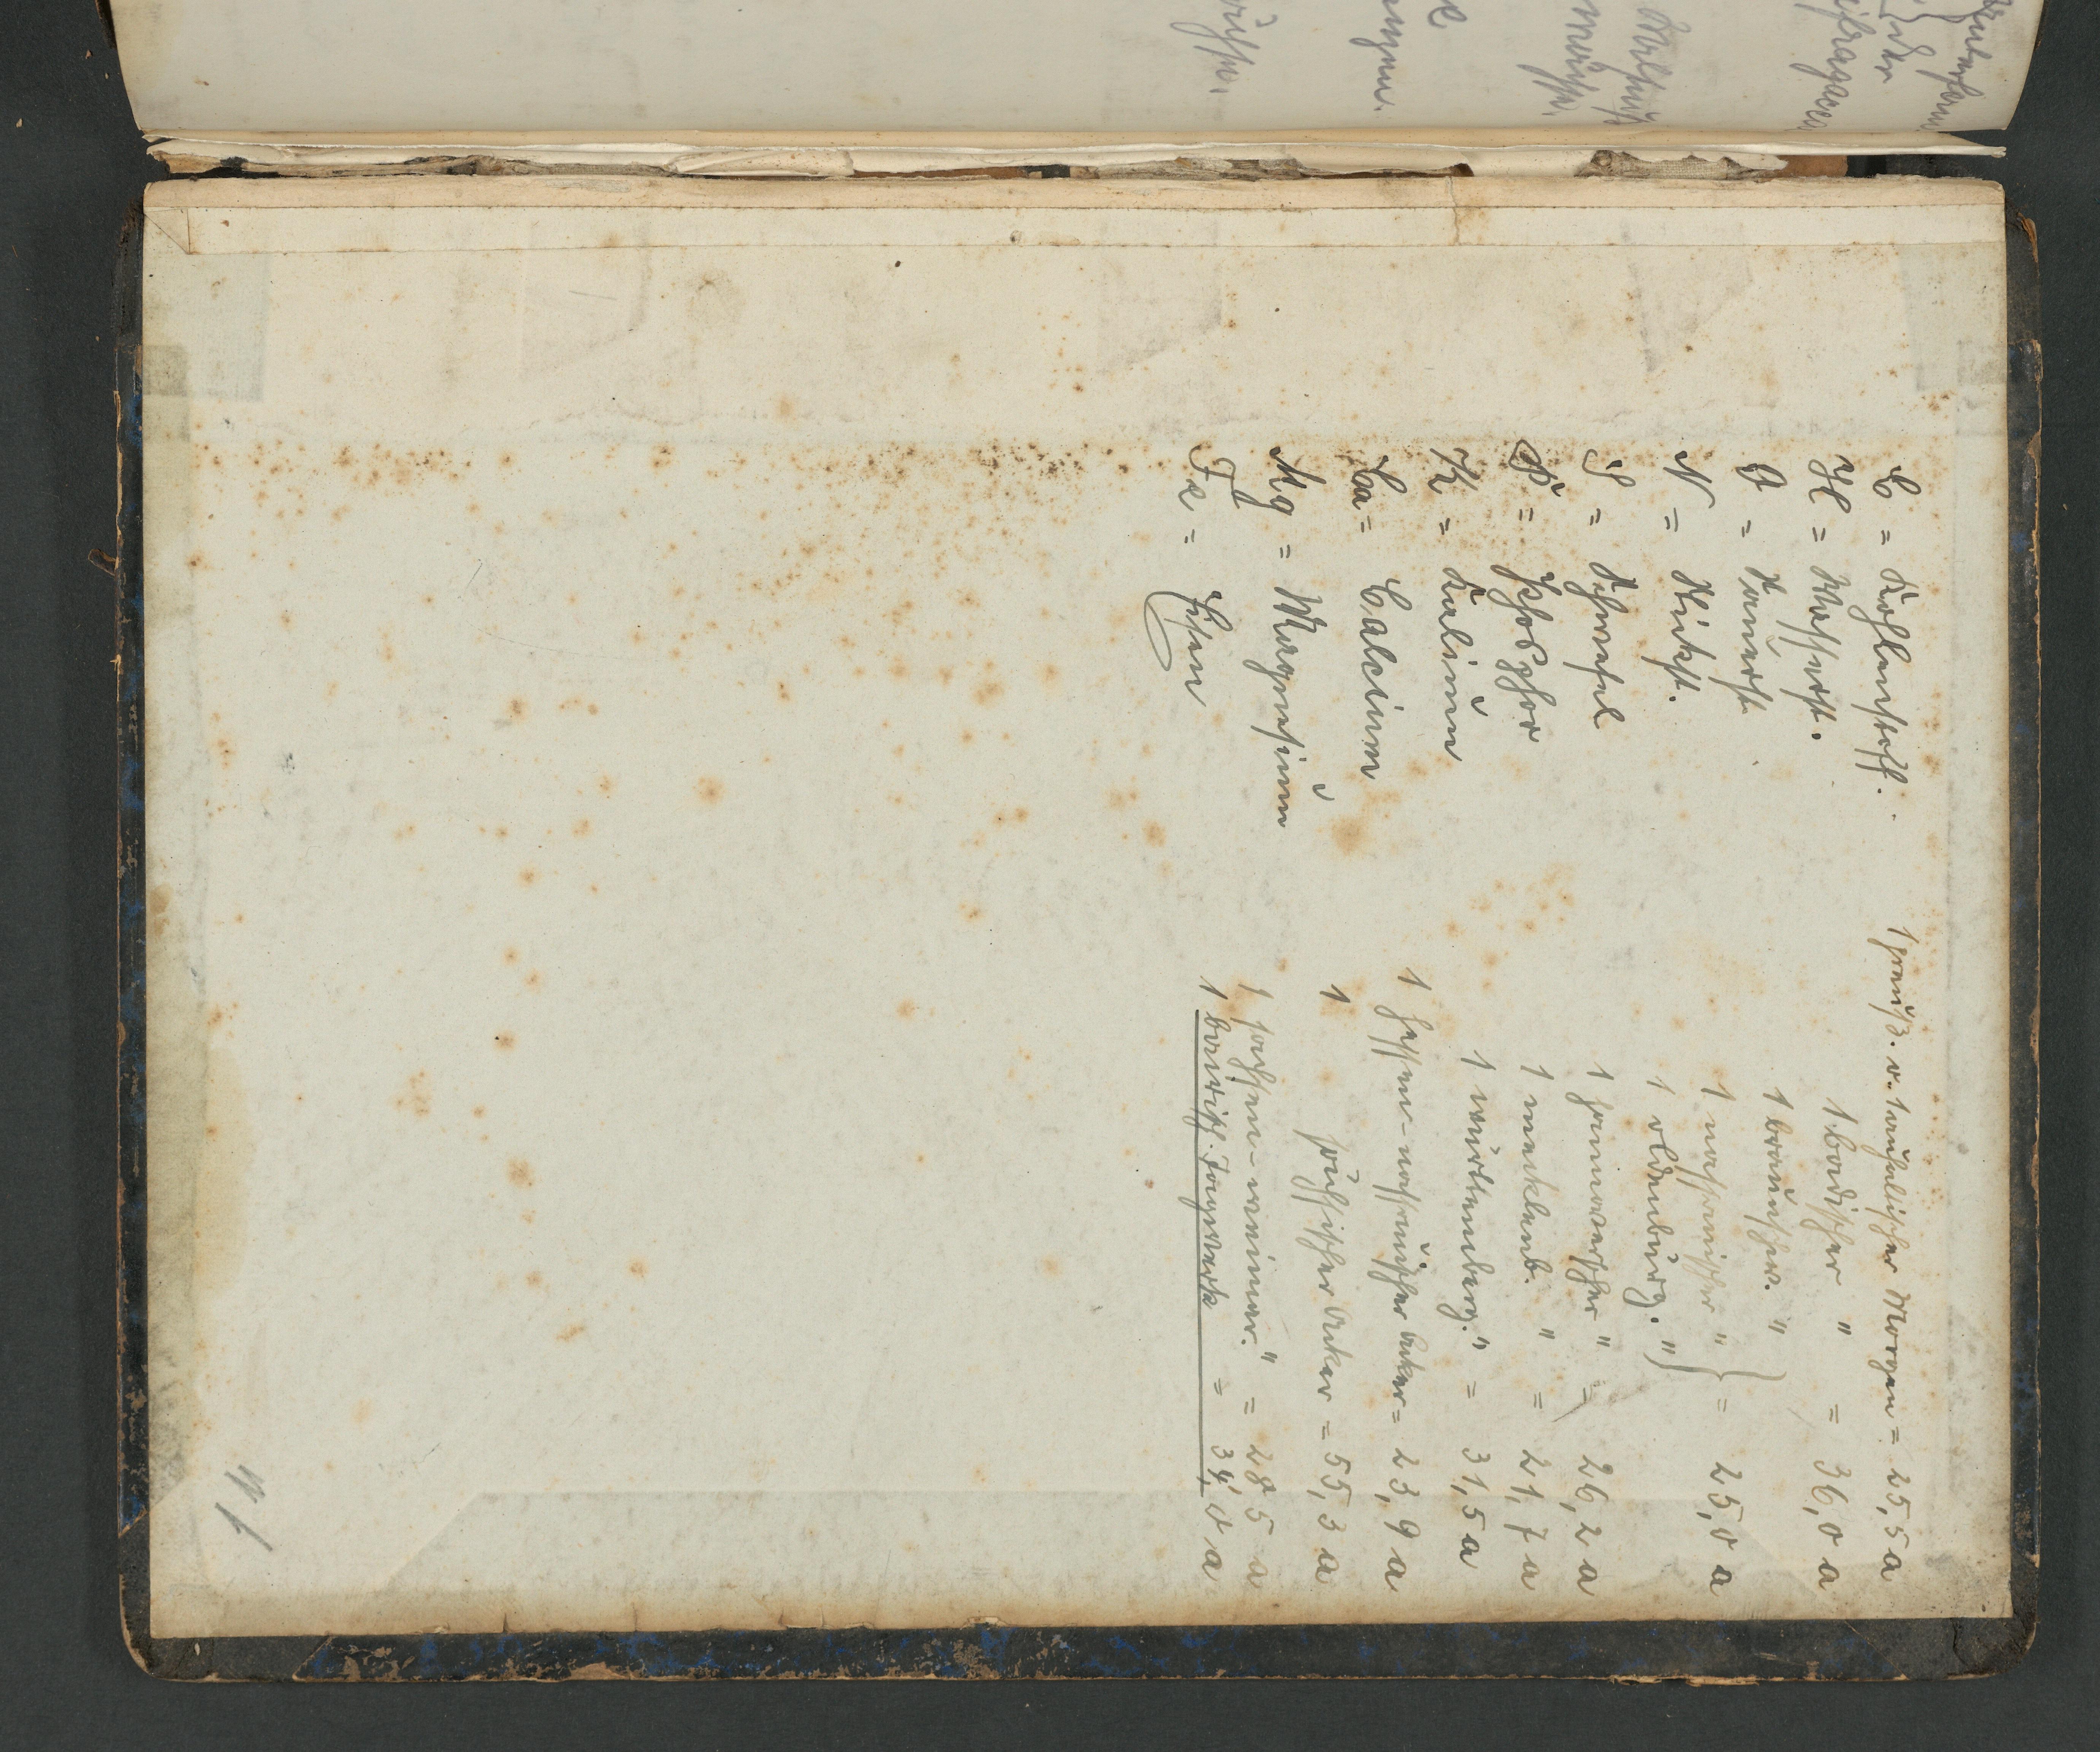 C = Kohlenstoff.
H = Wasserst.
O = Sauerst.
N = Stickst.
S = Schwefel
P = Phosphor
K = Kalium
Ca = Calcium
Mg = Magnesium
Fe = Eisen
1 preuß. u. 1 anhaltischer Morgen = 25,5 a
1 badischer " = 36,0 a
1 braunschw. "
1 nassauischer " } = 25,0 a
1 oldenburg. "
1 hannoverscher " = 26,2 a
1 mecklenb. " = 21,7 a
1 württemberg. " = 31,5 a
1 hessen-nassauischer Acker = 23,9 a
1 sächsischer Acker = 55,3 a
1 sachsen-weimar. " = 28,5 a
1 bairisch. Tagewerk = 34,0 a